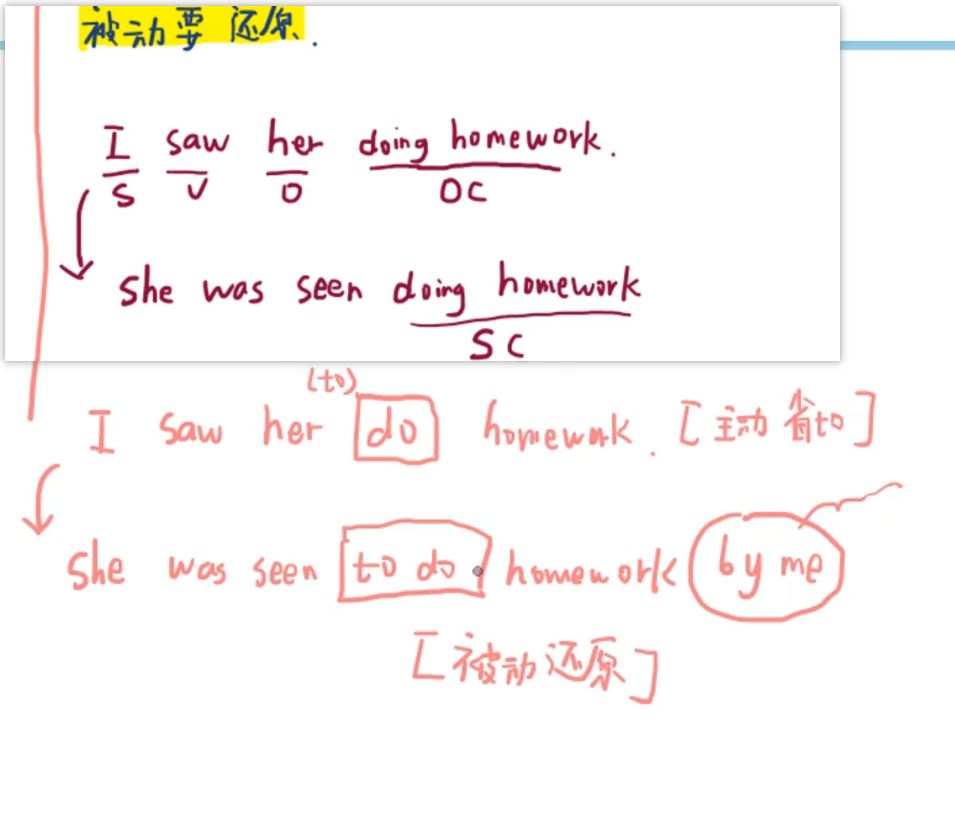 被动要还原.
I saw her doing homework.
S V O OC
She was seen doing homework
SC
(to)
I saw her do homework. [主动省to]
She was seen to do homework by me
[被动还原]